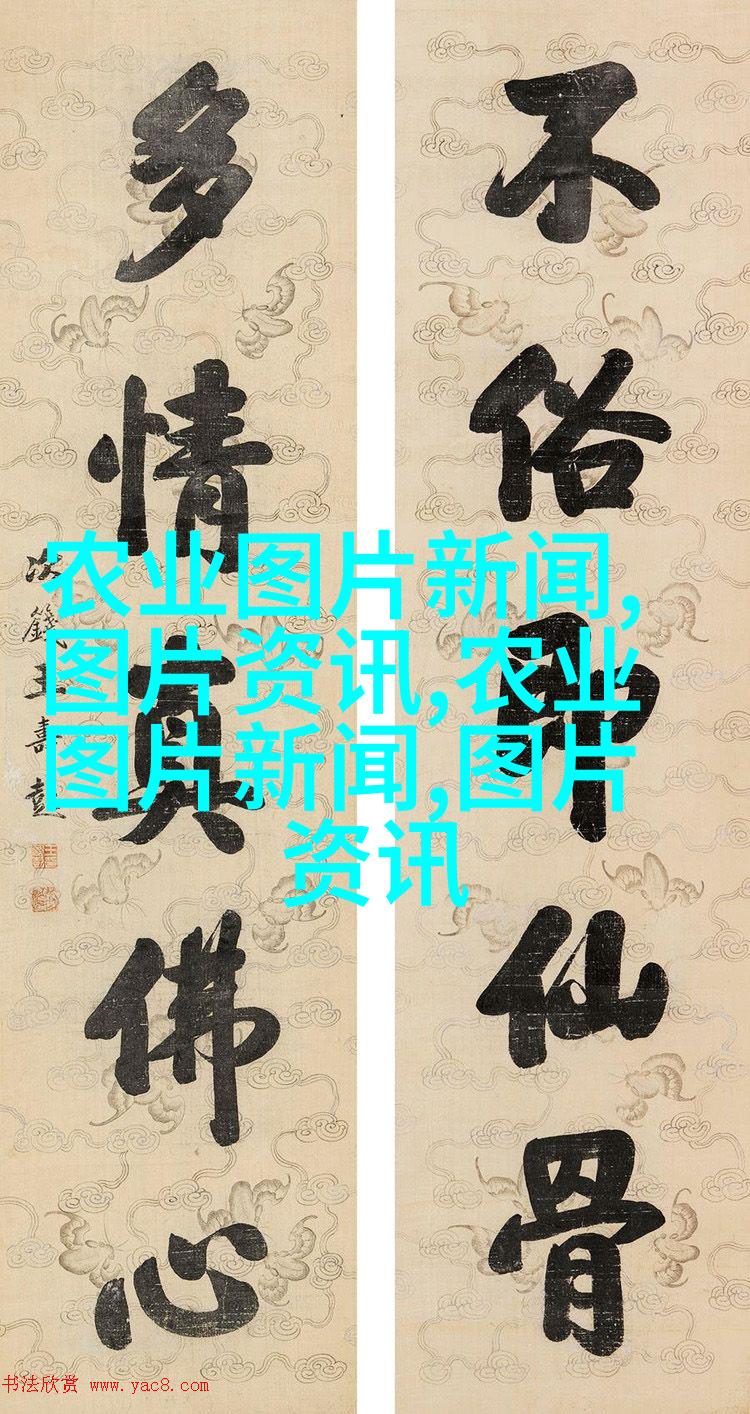 不俗即仙骨
多情真佛心
次篯王寿彭
农业图片新闻,
图片资讯,农业
图片新闻,图片
资讯
书法欣赏 www.yac8.com